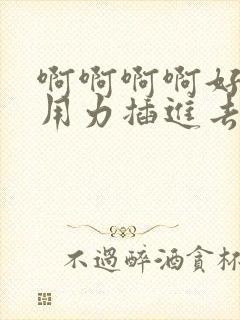 啊啊啊啊好
用力插進去
不過醉酒貪杯